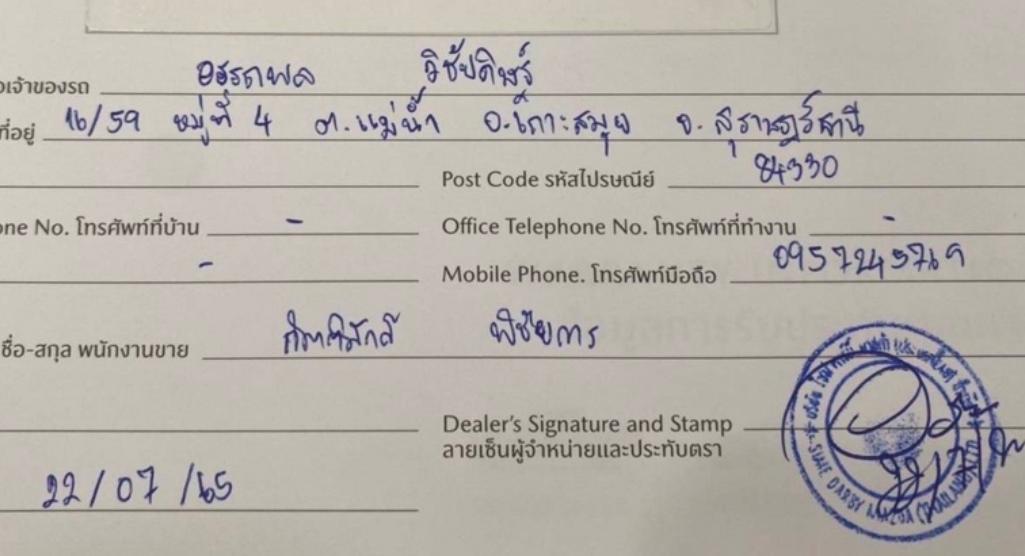 อเจ้าของรถ อรรถพล วิชัยดิษฐ์
ที่อยู่ 16/59 หมู่ที่ 4 ต.แม่น้ำ อ.เกาะสมุย จ.สุราษฎร์ธานี
Post Code รหัสไปรษณีย์ 84330
one No. โทรศัพท์ที่บ้าน - Office Telephone No. โทรศัพท์ที่ทำงาน -
- Mobile Phone. โทรศัพท์มือถือ 0957245769
ชื่อ-สกุล พนักงานขาย กิตติศักดิ์ พิชัยการ
Dealer's Signature and Stamp
ลายเซ็นผู้จำหน่ายและประทับตรา
22/07/65
SIME DARBY MAZDA (THAILAND) LTD.